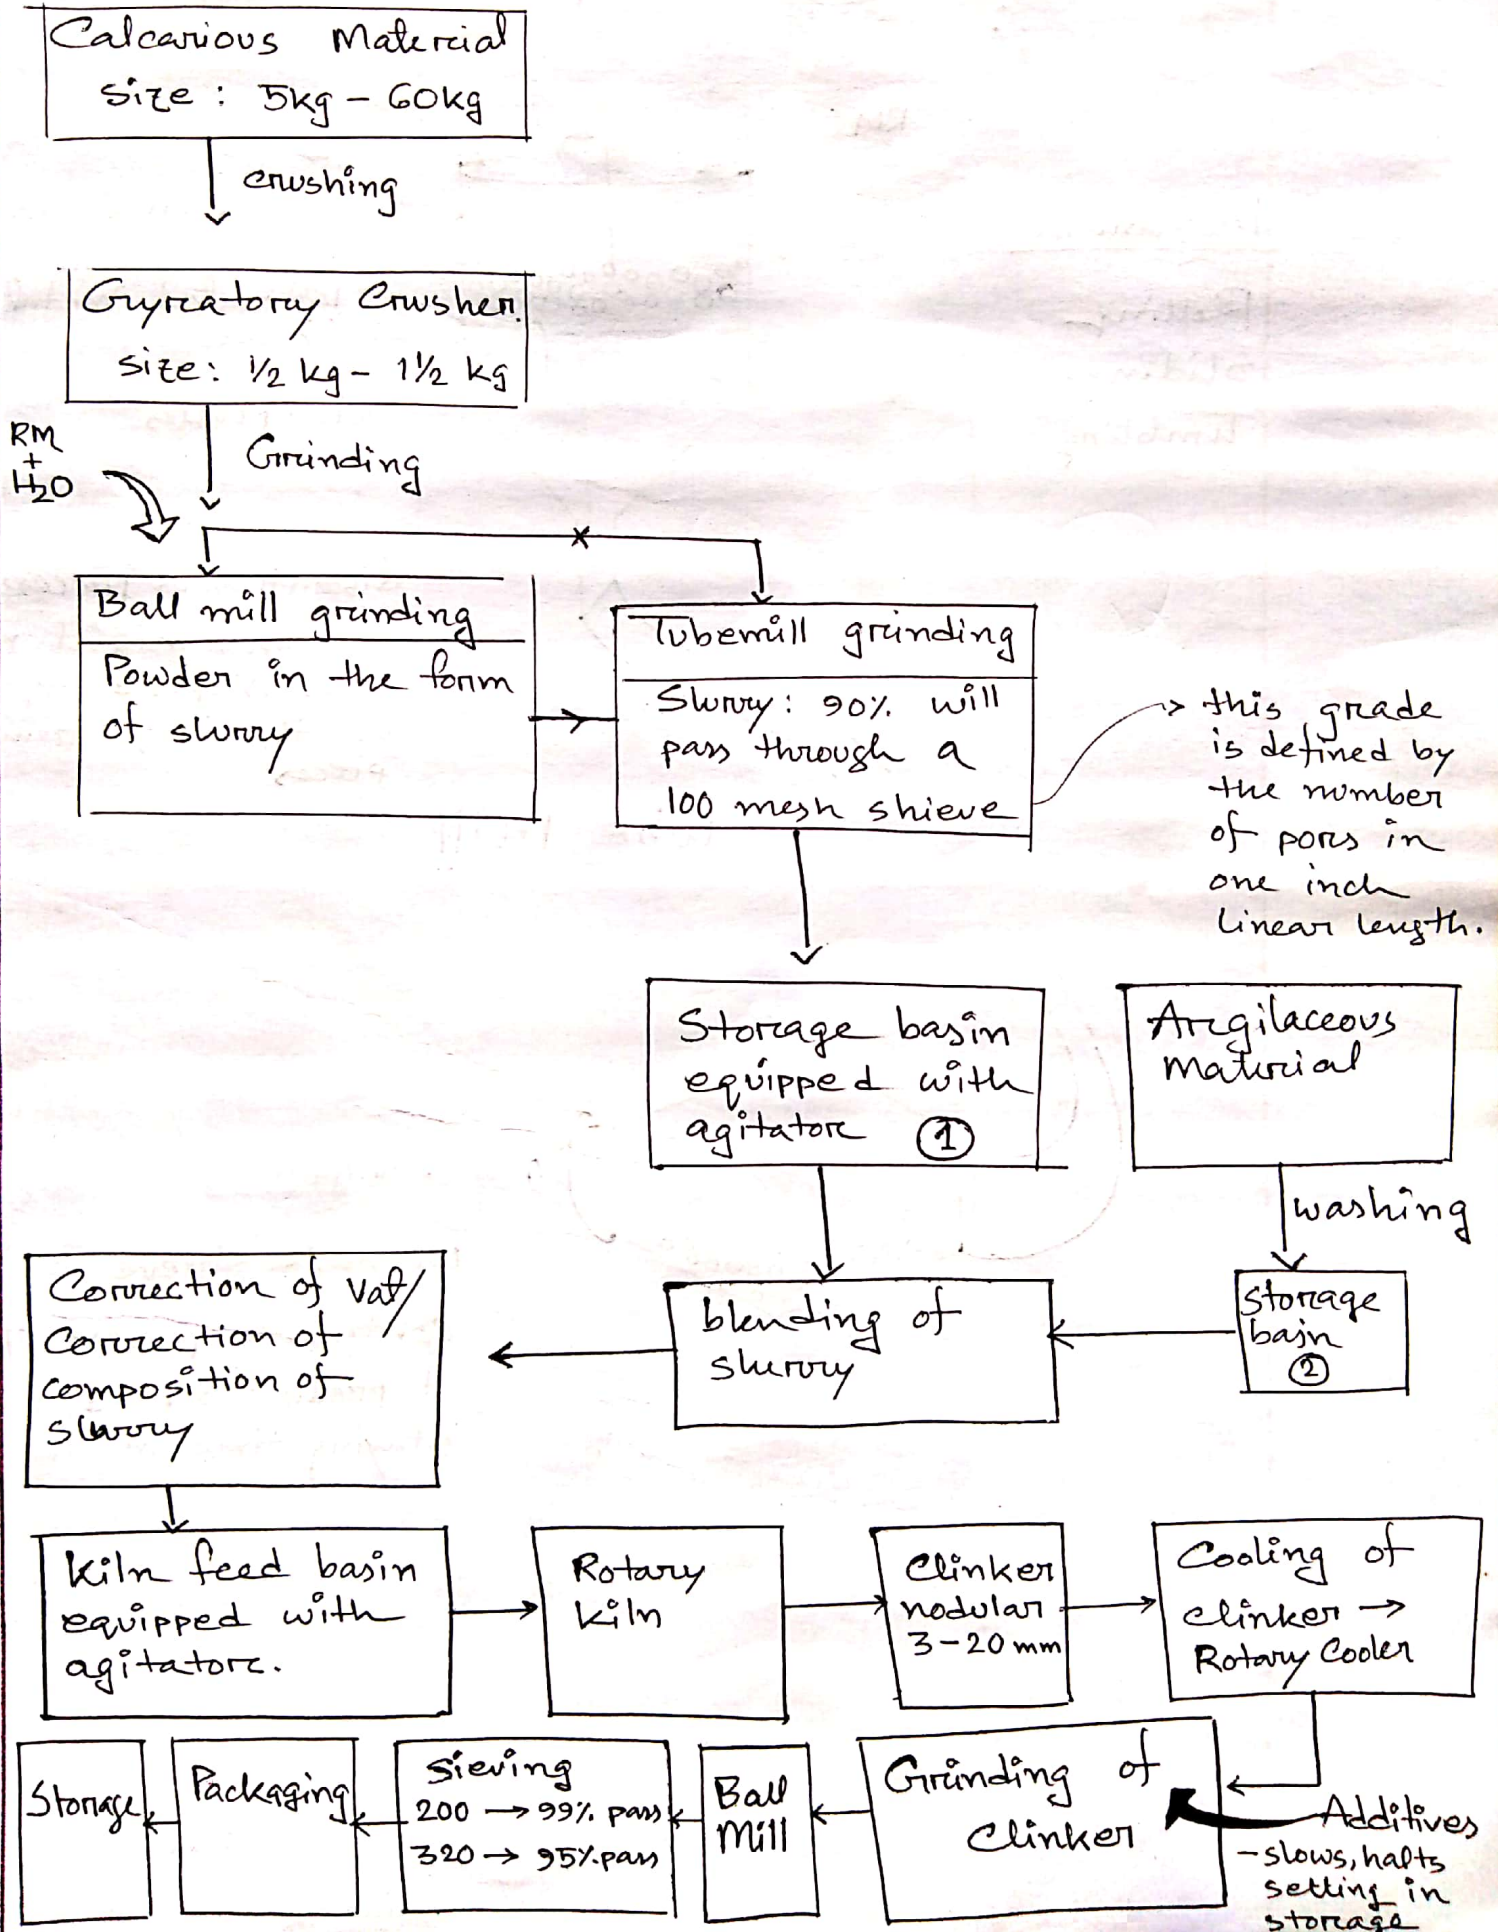 Calcarious Material
size : 5kg - 60kg
crushing
Gyratory Crusher.
size: 1/2 kg - 1 1/2 kg
RM
+
H2O
Grinding
Ball mill grinding
Powder in the form
of slurry
Tubemill grinding
Slurry: 90% will
pass through a
100 mesh shieve
this grade
is defined by
the number
of pors in
one inch
linear length.
Storage basin
equipped with
agitator 1
Argilaceous
material
washing
Storage
basn
2
blending of
slurry
Correction of Vat/
Correction of
composition of
slurry
Kiln feed basin
equipped with
agitator.
Rotary
Kiln
Clinker
nodular
3-20 mm
Cooling of
clinker →
Rotary Cooler
Additives
- slows, halts
setting in
storage
Grinding of
Clinker
Ball
Mill
Sieving
200 → 99% pass
320 → 95% pass
Packaging
Storage